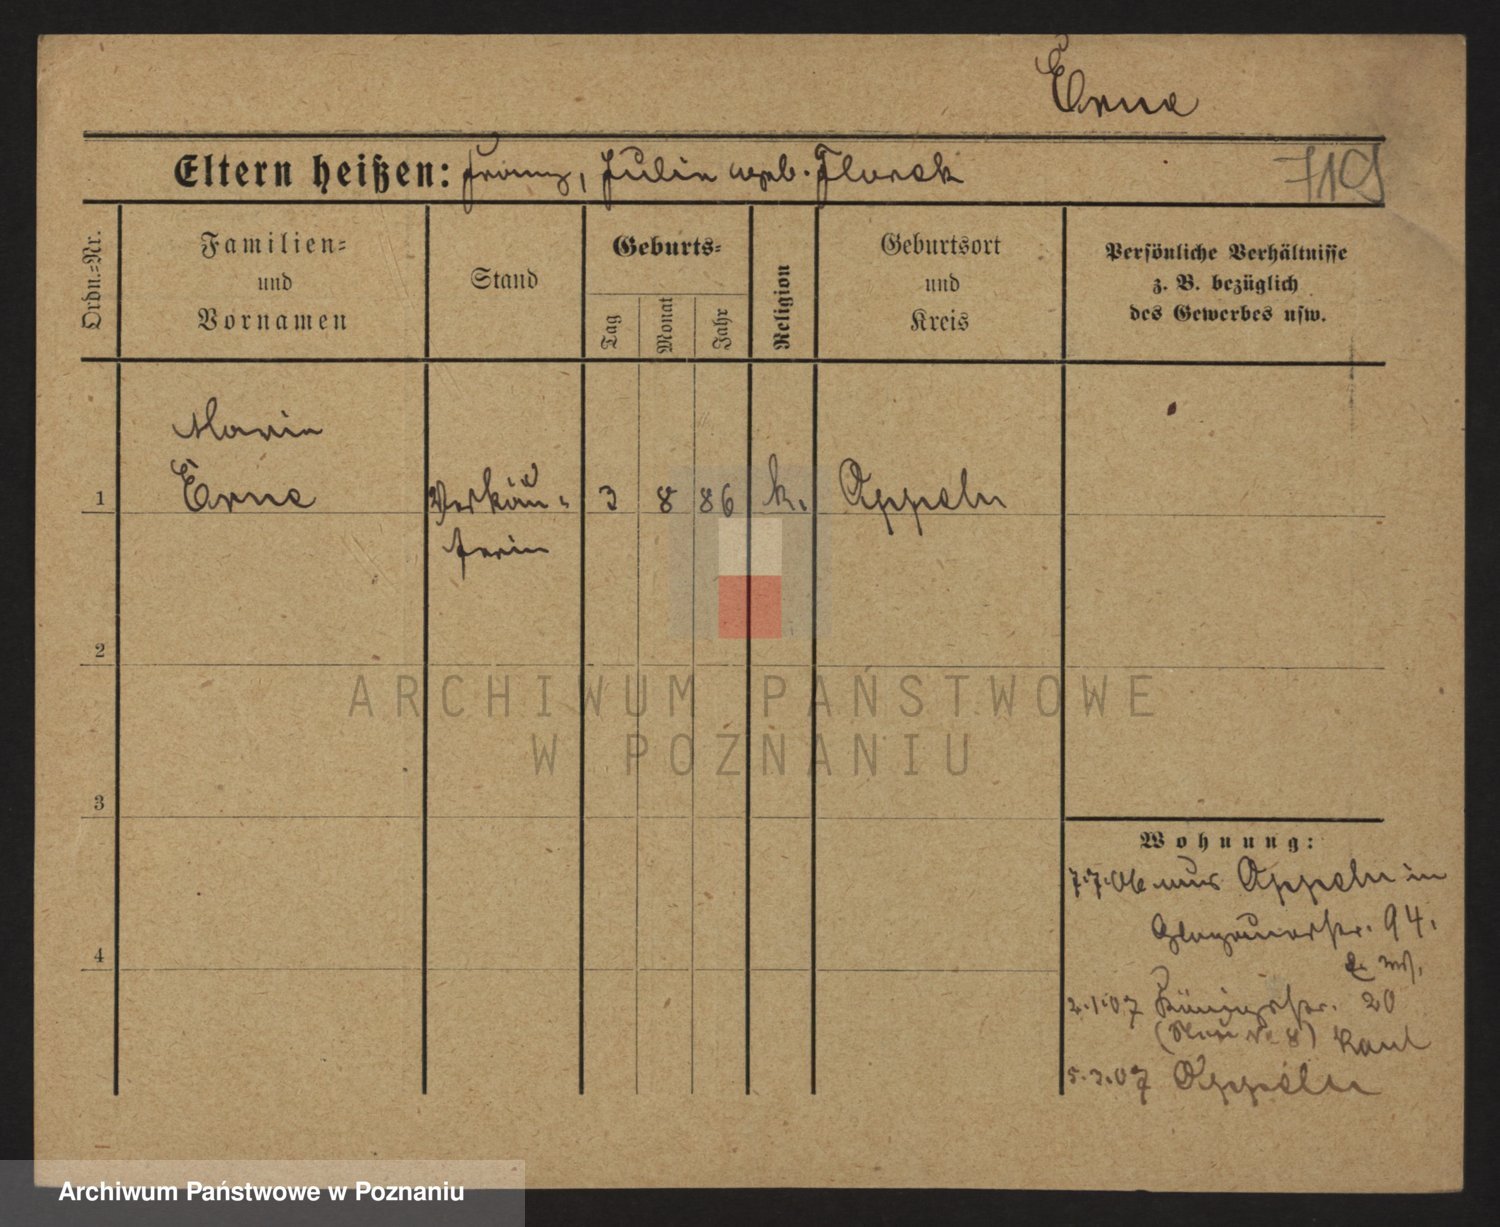 Erne
Eltern heißen: Franz, Julie geb. Florek
Ordn.=Nr.
Familien=
und
Vornamen
Stand
Geburts=
Tag
Monat
Jahr
Religion
Geburtsort
und
Kreis
Persönliche Verhältnisse
z. B. bezüglich
des Gewerbes usw.
Marie
1 Erne Verkäu= 3 8 86 k. Oppeln
ferin
2
ARCHIWUM PAŃSTWOWE
W POZNANIU
3
Wohnung:
7.7.06 aus Oppeln in
Glogauerstr. 94.
4
2.1.07 Königstr. 20
(Neu No 8)
5.3.07 Oppeln
Archiwum Państwowe w Poznaniu